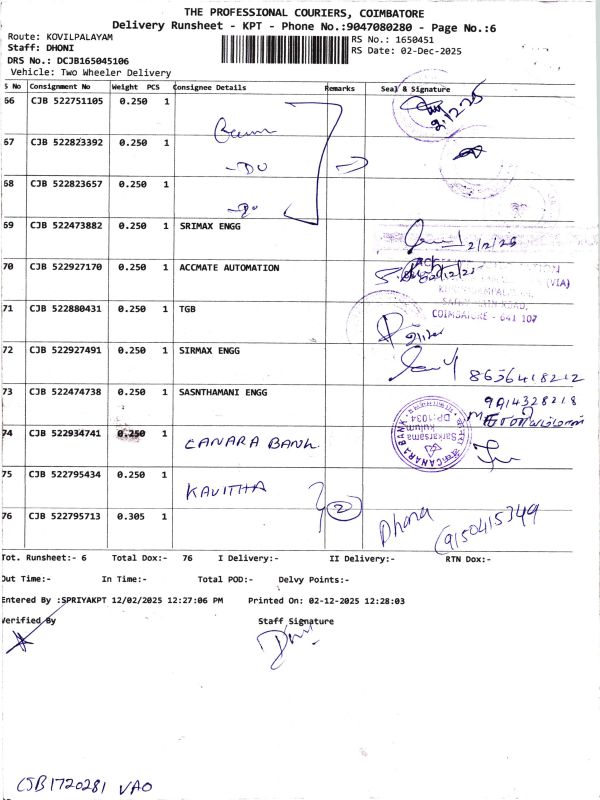 THE PROFESSIONAL COURIERS, COIMBATORE
Delivery Runsheet - KPT - Phone No.:9047080280 - Page No.:6
Route: KOVILPALAYAM
RS No.: 1650451
Staff: DHONI
RS Date: 02-Dec-2025
DRS No.: DCJB165045106
Vehicle: Two Wheeler Delivery
S No Consignment No Weight PCS Consignee Details Remarks Seal & Signature
66 CJB 522751105 0.250 1
2.12.25
67 CJB 522823392 0.250 1
-DO
68 CJB 522823657 0.250 1
-DO
69 CJB 522473882 0.250 1 SRIMAX ENGG
2/12/25
70 CJB 522927170 0.250 1 ACCMATE AUTOMATION
(VIA)
COIMBATORE - 641 107
71 CJB 522880431 0.250 1 TGB
72 CJB 522927491 0.250 1 SIRMAX ENGG
8656418212
73 CJB 522474738 0.250 1 SASNTHAMANI ENGG
9914328218
CANARA BANK
Sarkarsama
kulum
DP:1034
74 CJB 522934741 0.250 1 CANARA BANK
75 CJB 522795434 0.250 1 KAVITHA
2
76 CJB 522795713 0.305 1
Dhana 9150415349
Tot. Runsheet:- 6 Total Dox:- 76 I Delivery:- II Delivery:- RTN Dox:-
Out Time:- In Time:- Total POD:- Delvy Points:-
Entered By :SPRIYAKPT 12/02/2025 12:27:06 PM Printed On: 02-12-2025 12:28:03
Verified By Staff Signature
CJB1720281 VAO